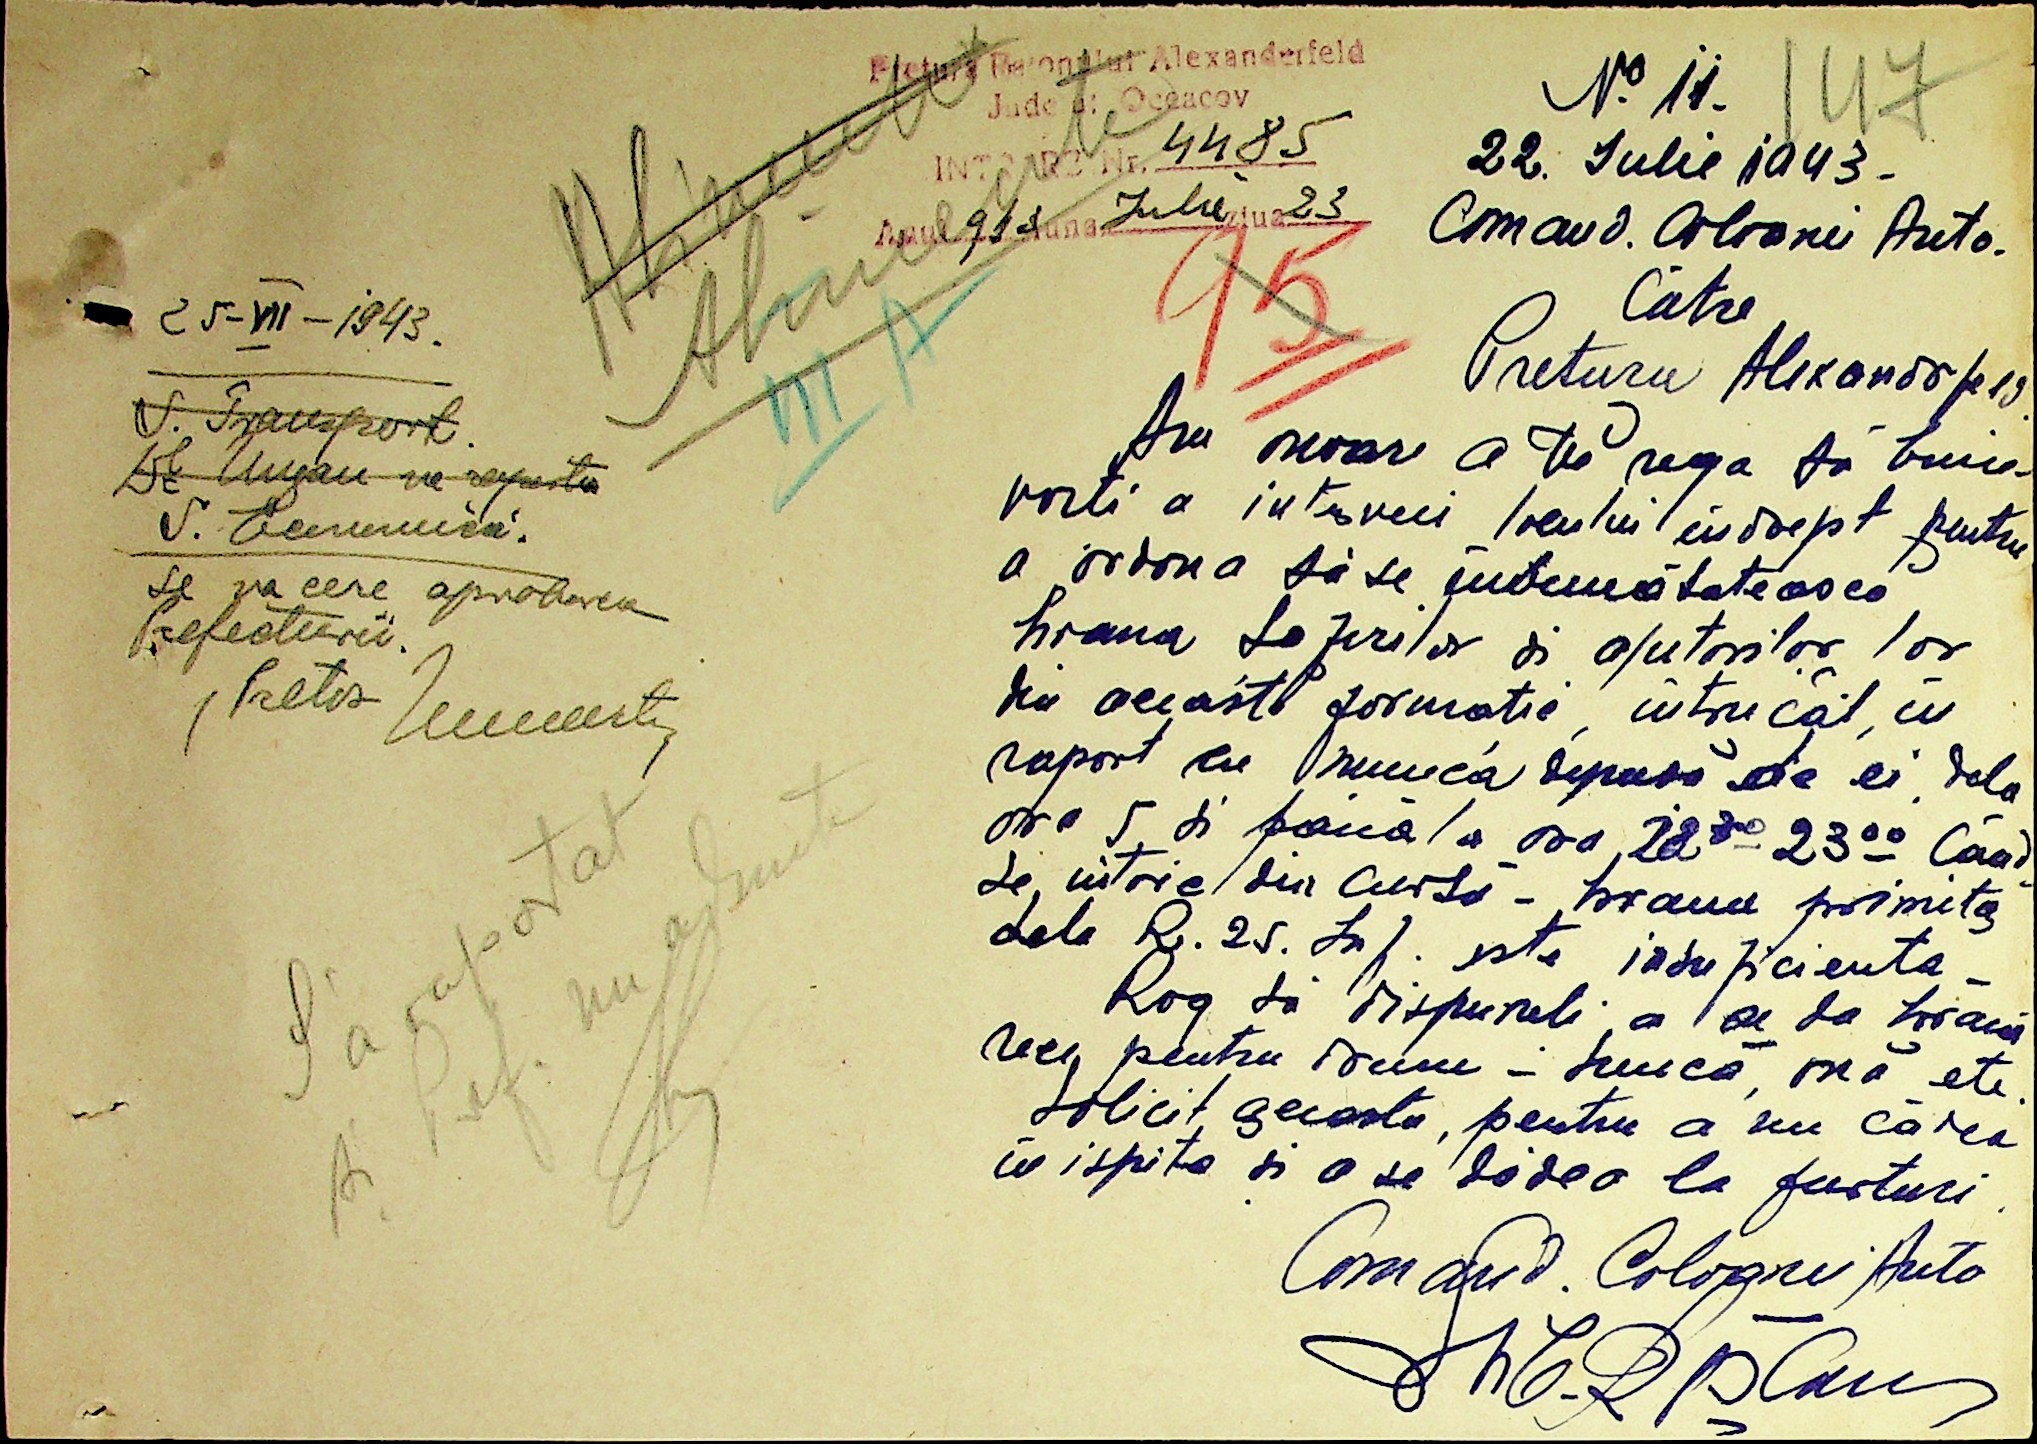 Pretura Raionului Alexanderfeld
Județul Oceacov
INTRARE Nr. 4485
Anul 943 luna Iulie ziua 23
95
VII A
No. 11.
147
22. Iulie 1943 -
Comand. Coloanei Auto.
Către
Pretura Alexandrfeld.
Am onoare a Vă ruga să binie-
voiti a interveni locului îndrept pentru
a ordona să se îmbunătătească
hrana soferilor si ajutorilor lor
din această formatie, intrucât, in
raport cu munca depusă de ei, dela
ora 5 si până la ora 22³⁰ 23⁰⁰ când
se intorc din cursă - hrana primită
dela R. 25. Inf. este insuficienta -
Rog să dispuneti a se da hrană
rece, pentru drum - suncă, ouă etc.
Solicit aceasta, pentru a nu cădea
in ispita si a se dădea la furturi.
Comand. Coloanei Auto
25-VII-1943.
S. Transport.
se va cere aprobarea
Prefecturii.
Pretor
S'a raportat
Pref. nu admite